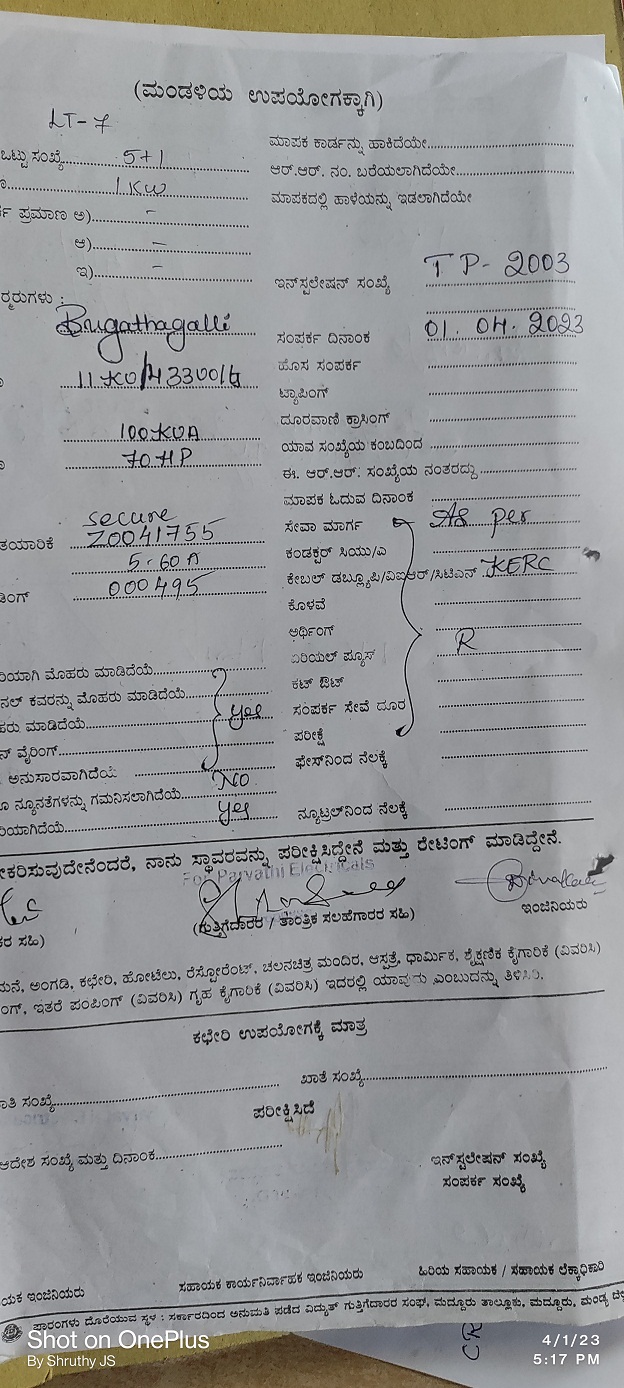 (ಮಂಡಳಿಯ ಉಪಯೋಗಕ್ಕಾಗಿ)
LT-7
ಒಟ್ಟು ಸಂಖ್ಯೆ 5+1
1 KW
ಪ್ರಮಾಣ ಅ) –
ಆ) –
ಇ) –
Brugathagalli
100 KVA
70 HP
secure
ತಯಾರಿಕೆ Z0041755
5-60 A
000495
ರಿಯಾಗಿ ಮೊಹರು ಮಾಡಿದೆಯೆ
ನಲ್ ಕವರನ್ನು ಮೊಹರು ಮಾಡಿದೆಯೆ
ಹರು ಮಾಡಿದೆಯೆ yes
ನ್ ವೈರಿಂಗ್
ಅನುಸಾರವಾಗಿದೆಯೆ
ನ್ಯೂನತೆಗಳನ್ನು ಗಮನಿಸಲಾಗಿದೆಯೆ NO
ರಿಯಾಗಿದೆಯೆ yes
ಮಾಪಕ ಕಾರ್ಡನ್ನು ಹಾಕಿದೆಯೇ
ಆರ್.ಆರ್. ನಂ. ಬರೆಯಲಾಗಿದೆಯೇ
ಮಾಪಕದಲ್ಲಿ ಹಾಳೆಯನ್ನು ಇಡಲಾಗಿದೆಯೇ
ಇನ್‌ಸ್ಟಲೇಷನ್ ಸಂಖ್ಯೆ TP-2003
ಸಂಪರ್ಕ ದಿನಾಂಕ 01.04.2023
ಹೊಸ ಸಂಪರ್ಕ
ಟ್ಯಾಪಿಂಗ್
ದೂರವಾಣಿ ಕ್ರಾಸಿಂಗ್
ಯಾವ ಸಂಖ್ಯೆಯ ಕಂಬದಿಂದ
ಈ. ಆರ್.ಆರ್. ಸಂಖ್ಯೆಯ ನಂತರದ್ದು
ಮಾಪಕ ಓದುವ ದಿನಾಂಕ
ಸೇವಾ ಮಾರ್ಗ As per
ಕಂಡಕ್ಟರ್ ಸಿಯು/ಎ
ಕೇಬಲ್ ಡಬ್ಲ್ಯೂಪಿ/ವಿಐಆರ್/ಸಿಟಿಎಸ್ KERC
ಕೊಳವೆ
ಅರ್ಥಿಂಗ್
ಏರಿಯಲ್ ಫ್ಯೂಸ್ R
ಕಟ್ ಔಟ್
ಸಂಪರ್ಕ ಸೇವೆ ದೂರ
ಪರೀಕ್ಷೆ
ಫೇಸ್‌ನಿಂದ ನೆಲಕ್ಕೆ
ನ್ಯೂಟ್ರಲ್‌ನಿಂದ ನೆಲಕ್ಕೆ
ಕರಿಸುವುದೇನೆಂದರೆ, ನಾನು ಸ್ಥಾವರವನ್ನು ಪರೀಕ್ಷಿಸಿದ್ದೇನೆ ಮತ್ತು ರೇಟಿಂಗ್ ಮಾಡಿದ್ದೇನೆ.
For Parvathi Electricals
ಕರ ಸಹಿ) (ಗುತ್ತಿಗೆದಾರರ / ತಾಂತ್ರಿಕ ಸಲಹೆಗಾರರ ಸಹಿ) ಇಂಜಿನಿಯರು
ಮನೆ, ಅಂಗಡಿ, ಕಛೇರಿ, ಹೋಟೆಲು, ರೆಸ್ಟೋರೆಂಟ್, ಚಲನಚಿತ್ರ ಮಂದಿರ, ಆಸ್ಪತ್ರೆ, ಧಾರ್ಮಿಕ, ಶೈಕ್ಷಣಿಕ ಕೈಗಾರಿಕೆ (ವಿವರಿಸಿ)
ಂಗ್, ಇತರೆ ಪಂಪಿಂಗ್ (ವಿವರಿಸಿ) ಗೃಹ ಕೈಗಾರಿಕೆ (ವಿವರಿಸಿ) ಇದರಲ್ಲಿ ಯಾವುದು ಎಂಬುದನ್ನು ತಿಳಿಸಿರಿ.
ಕಛೇರಿ ಉಪಯೋಗಕ್ಕೆ ಮಾತ್ರ
ಾತಿ ಸಂಖ್ಯೆ ಖಾತೆ ಸಂಖ್ಯೆ
ಪರೀಕ್ಷಿಸಿದೆ
ಆದೇಶ ಸಂಖ್ಯೆ ಮತ್ತು ದಿನಾಂಕ ಇನ್‌ಸ್ಟಲೇಶನ್ ಸಂಖ್ಯೆ
ಸಂಪರ್ಕ ಸಂಖ್ಯೆ
ಯಕ ಇಂಜಿನಿಯರು ಸಹಾಯಕ ಕಾರ್ಯನಿರ್ವಾಹಕ ಇಂಜಿನಿಯರು ಹಿರಿಯ ಸಹಾಯಕ / ಸಹಾಯಕ ಲೆಕ್ಕಾಧಿಕಾರಿ
ಫಾರಂಗಳು ದೊರೆಯುವ ಸ್ಥಳ : ಸರ್ಕಾರದಿಂದ ಅನುಮತಿ ಪಡೆದ ವಿದ್ಯುತ್ ಗುತ್ತಿಗೆದಾರರ ಸಂಘ, ಮದ್ದೂರು ತಾಲ್ಲೂಕು, ಮದ್ದೂರು, ಮಂಡ್ಯ
Shot on OnePlus
By Shruthy JS
4/1/23
5:17 PM